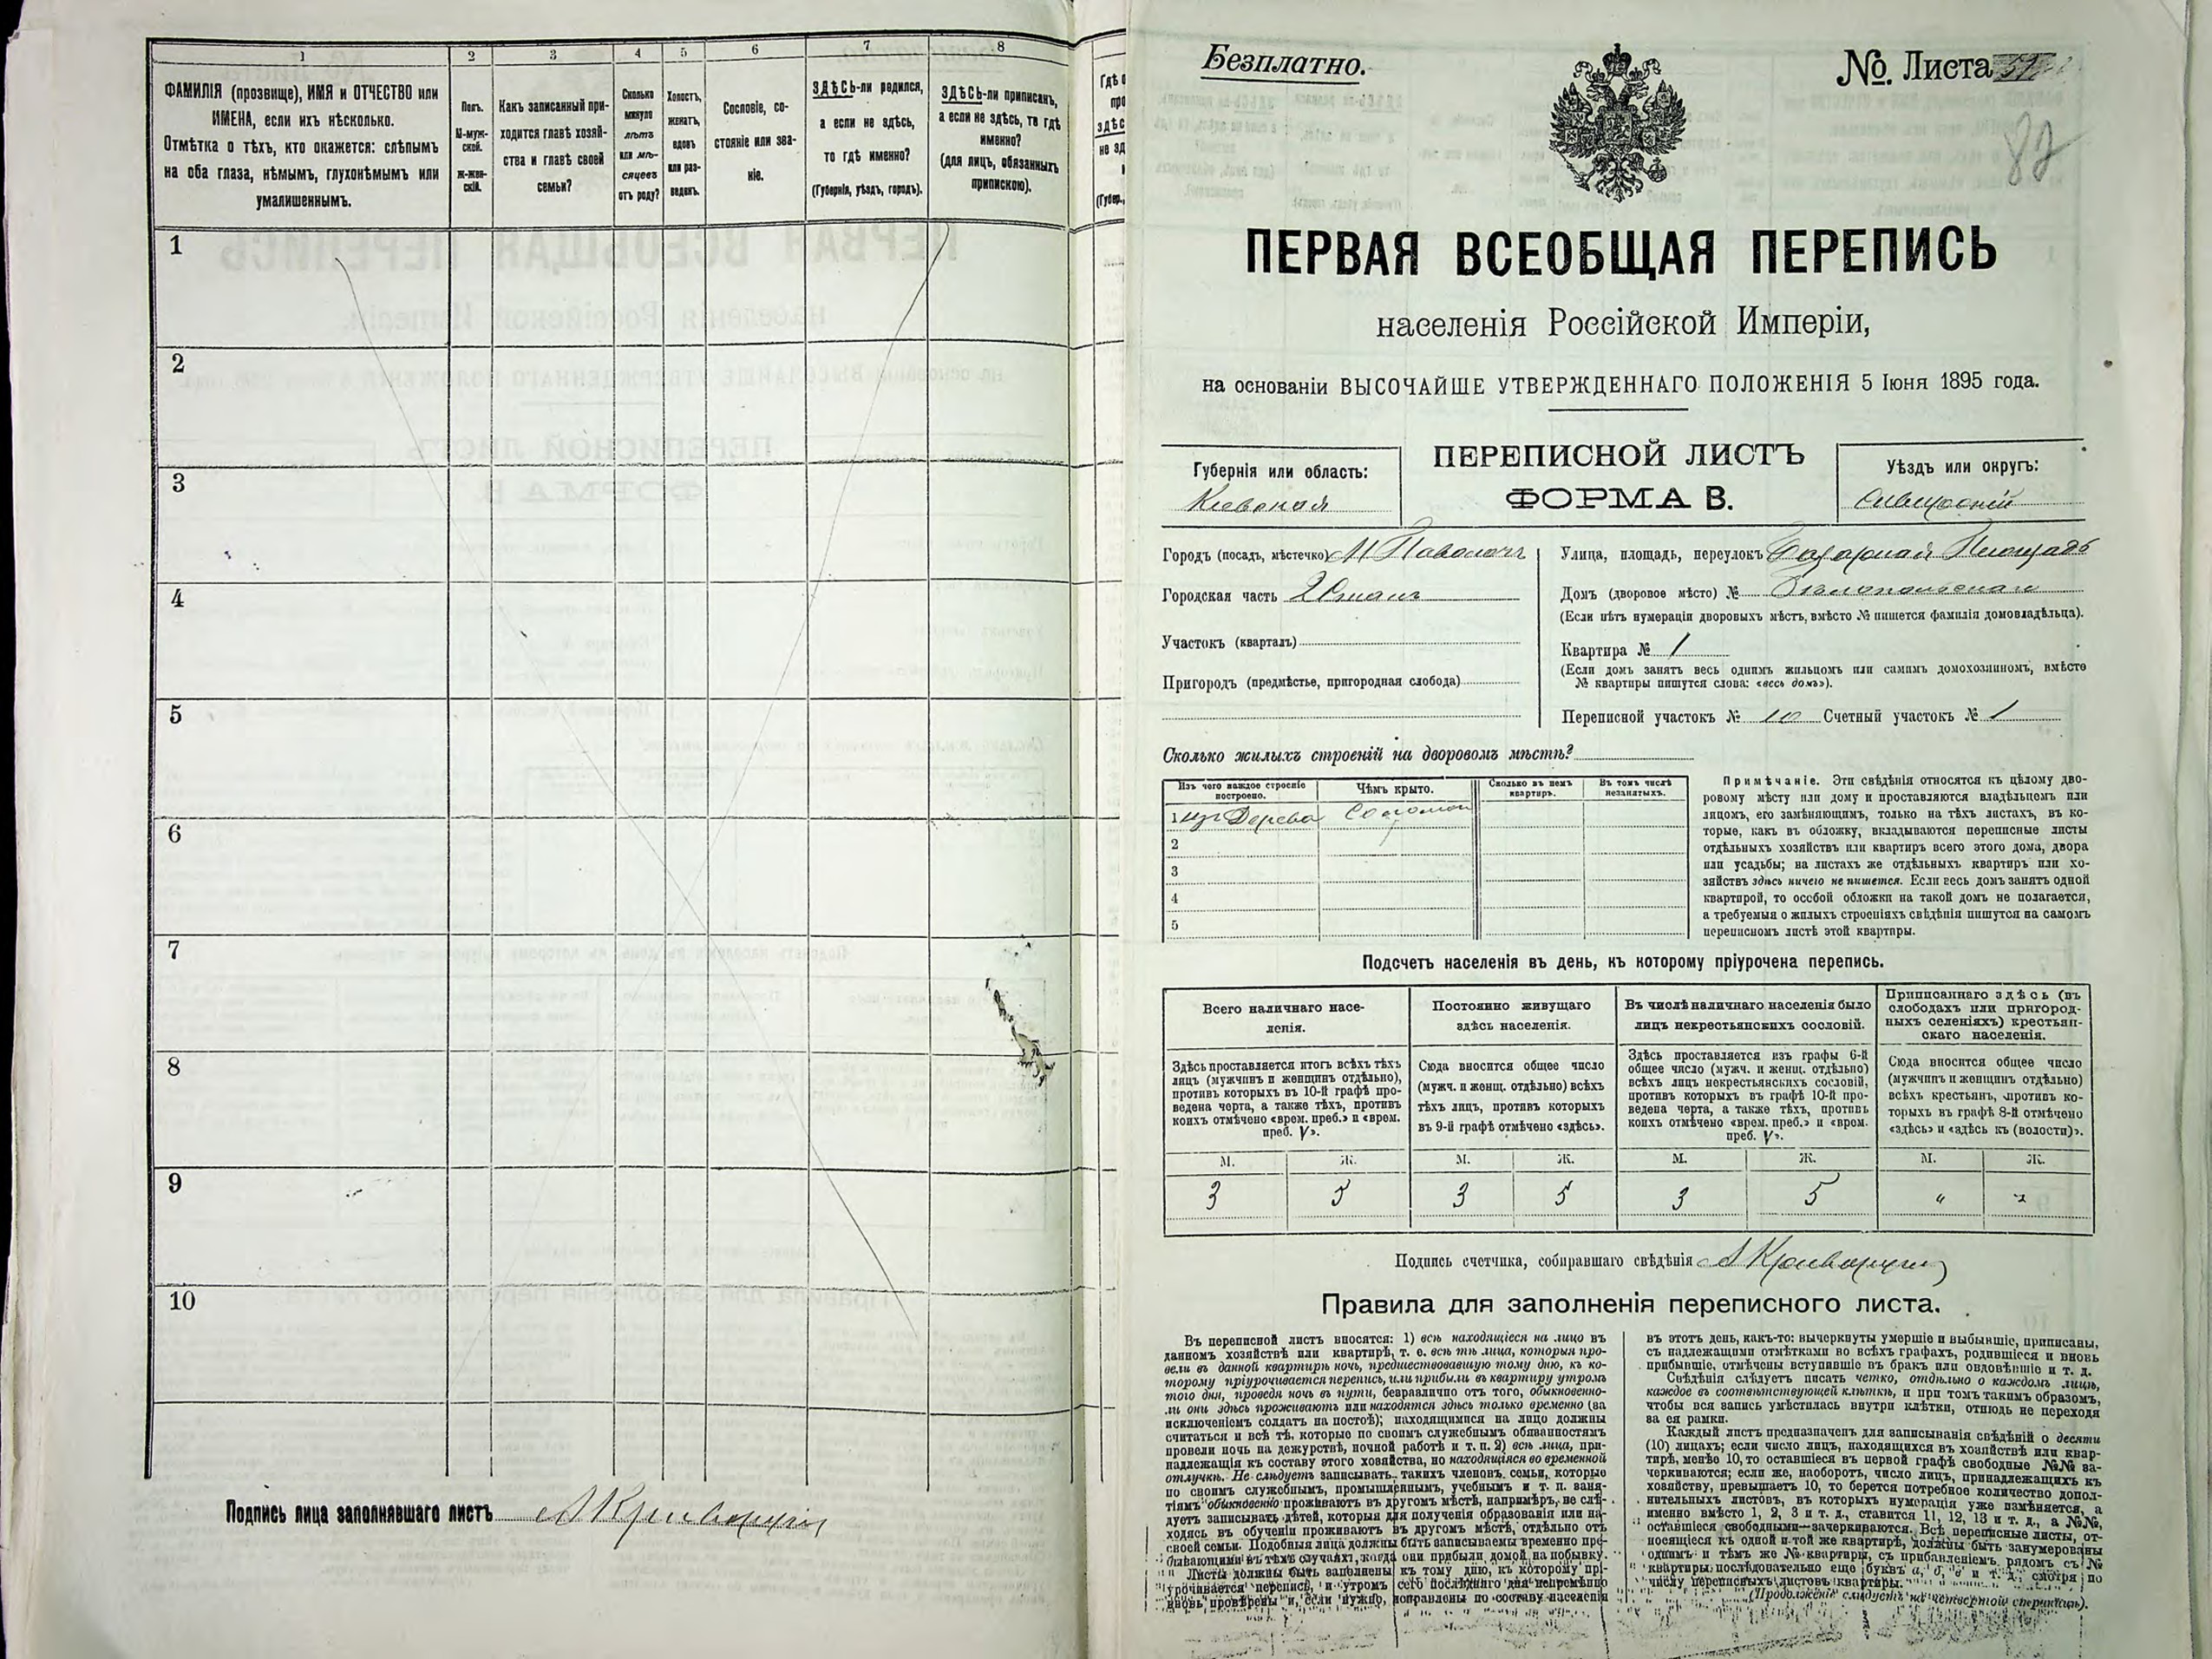 1 2 3 4 5 6 7 8
ФАМИЛІЯ (прозвище), ИМЯ и ОТЧЕСТВО или
ИМЕНА, если ихъ нѣсколько.
Отмѣтка о тѣхъ, кто окажется: слѣпымъ
на оба глаза, нѣмымъ, глухонѣмымъ или
умалишеннымъ.
Полъ.
М-муж-
ской.
Ж-жен-
скій.
Какъ записанный при-
ходится главѣ хозяй-
ства и главѣ своей
семьи?
Сколько
минуло
лѣтъ
или мѣ-
сяцевъ
отъ роду?
Холостъ,
женатъ,
вдовъ
или раз-
веденъ.
Сословіе, со-
стояніе или зва-
ніе.
ЗДѢСЬ-ли родился,
а если не здѣсь,
то гдѣ именно?
(Губернія, уѣздъ, городъ).
ЗДѢСЬ-ли приписанъ,
а если не здѣсь, то гдѣ
именно?
(для лицъ, обязанныхъ
припискою).
1
2
3
4
5
6
7
8
9
10
Подпись лица заполнявшаго листъ
Безплатно.
№. Листа
82
ПЕРВАЯ ВСЕОБЩАЯ ПЕРЕПИСЬ
населенія Россійской Имперіи,
на основаніи ВЫСОЧАЙШЕ УТВЕРЖДЕННАГО ПОЛОЖЕНІЯ 5 Іюня 1895 года.
Губернія или область:
Кіевская
ПЕРЕПИСНОЙ ЛИСТЪ
ФОРМА В.
Уѣздъ или округъ:
Сквирскій
Городъ (посадъ, мѣстечко) М Паволочь
Городская часть
Участокъ (кварталъ)
Пригородъ (предмѣстье, пригородная слобода)
Улица, площадь, переулокъ Базарная Площадь
Домъ (дворовое мѣсто) №
(Если нѣтъ нумераціи дворовыхъ мѣстъ, вмѣсто № пишется фамилія домовладѣльца).
Квартира № 1
(Если домъ занятъ весь однимъ жильцомъ или самимъ домохозяиномъ, вмѣсто
№ квартиры пишутся слова: «весь домъ»).
Переписной участокъ № 10 Счетный участокъ № 1
Сколько жилыхъ строеній на дворовомъ мѣстѣ?
Изъ чего каждое строеніе
построено.
Чѣмъ крыто.
Сколько въ немъ
квартиръ.
Въ томъ числѣ
незанятыхъ.
1 изъ Дерева Соломой
2
3
4
5
Примѣчаніе. Эти свѣдѣнія относятся къ цѣлому дво-
ровому мѣсту или дому и проставляются владѣльцемъ или
лицомъ, его замѣняющимъ, только на тѣхъ листахъ, въ ко-
торые, какъ въ обложку, вкладываются переписные листы
отдѣльныхъ хозяйствъ или квартиръ всего этого дома, двора
или усадьбы; на листахъ же отдѣльныхъ квартиръ или хо-
зяйствъ здѣсь ничего не пишется. Если весь домъ занятъ одной
квартирой, то особой обложки на такой домъ не полагается,
а требуемыя о жилыхъ строеніяхъ свѣдѣнія пишутся на самомъ
переписномъ листѣ этой квартиры.
Подсчетъ населенія въ день, къ которому пріурочена перепись.
Всего наличнаго насе-
ленія.
Постоянно живущаго
здѣсь населенія.
Въ числѣ наличнаго населенія было
лицъ некрестьянскихъ сословій.
Приписаннаго здѣсь (въ
слободахъ или пригород-
ныхъ селеніяхъ) крестьян-
скаго населенія.
Здѣсь проставляется итогъ всѣхъ тѣхъ
лицъ (мужчинъ и женщинъ отдѣльно),
противъ которыхъ въ 10-й графѣ про-
ведена черта, а также тѣхъ, противъ
коихъ отмѣчено «врем. преб.» и «врем.
преб. V».
Сюда вносится общее число
(мужч. и женщ. отдѣльно) всѣхъ
тѣхъ лицъ, противъ которыхъ
въ 9-й графѣ отмѣчено «здѣсь».
Здѣсь проставляется изъ графы 6-й
общее число (мужч. и женщ. отдѣльно)
всѣхъ лицъ некрестьянскихъ сословій,
противъ которыхъ въ графѣ 10-й про-
ведена черта, а также тѣхъ, противъ
коихъ отмѣчено «врем. преб.» и «врем.
преб. V».
Сюда вносится общее число
(мужчинъ и женщинъ отдѣльно)
всѣхъ крестьянъ, противъ ко-
торыхъ въ графѣ 8-й отмѣчено
«здѣсь» и «здѣсь къ (волости)».
М. Ж. М. Ж. М. Ж. М. Ж.
3 5 3 5 3 5 " "
Подпись счетчика, собиравшаго свѣдѣнія
Правила для заполненія переписного листа.
Въ переписной листъ вносятся: 1) всѣ находящіеся на лицо въ
данномъ хозяйствѣ или квартирѣ, т. е. всѣ тѣ лица, которыя про-
вели въ данной квартирѣ ночь, предшествовавшую тому дню, къ ко-
торому пріурочивается перепись, или прибыли въ квартиру утромъ
того дня, проведя ночь въ пути, безразлично отъ того, обыкновенно-
ли они здѣсь проживаютъ или находятся здѣсь только временно (за
исключеніемъ солдатъ на постоѣ); находящимися на лицо должны
считаться и всѣ тѣ, которые по своимъ служебнымъ обязанностямъ
провели ночь на дежурствѣ, ночной работѣ и т. п. 2) всѣ лица, при-
надлежащія къ составу этого хозяйства, но находящіяся во временной
отлучкѣ. Не слѣдуетъ записывать такихъ членовъ семьи, которые
по своимъ служебнымъ, промышленнымъ, учебнымъ и т. п. заня-
тіямъ обыкновенно проживаютъ въ другомъ мѣстѣ, напримѣръ, не слѣ-
дуетъ записывать дѣтей, которыя для полученія образованія или на-
ходясь въ обученіи проживаютъ въ другомъ мѣстѣ, отдѣльно отъ
своей семьи. Подобныя лица должны быть записываемы временно пре-
бывающими въ тѣхъ случаяхъ, когда они прибыли домой на побывку.
Листы должны быть заполнены къ тому дню, къ которому прі-
урочивается перепись, и утромъ сего послѣдняго дня непремѣнно
вновь провѣрены и, если нужно, исправлены по составу населенія
въ этотъ день, какъ-то: вычеркнуты умершіе и выбывшіе, приписаны,
съ надлежащими отмѣтками во всѣхъ графахъ, родившіеся и вновь
прибывшіе, отмѣчены вступившіе въ бракъ или овдовѣвшіе и т. д.
Свѣдѣнія слѣдуетъ писать четко, отдѣльно о каждомъ лицѣ,
каждое въ соотвѣтствующей клѣткѣ, и при томъ такимъ образомъ,
чтобы вся запись умѣстилась внутри клѣтки, отнюдь не переходя
за ея рамки.
Каждый листъ предназначенъ для записыванія свѣдѣній о десяти
(10) лицахъ; если число лицъ, находящихся въ хозяйствѣ или квар-
тирѣ, менѣе 10, то оставшіеся въ первой графѣ свободные №№ за-
черкиваются; если же, наоборотъ, число лицъ, принадлежащихъ къ
хозяйству, превышаетъ 10, то берется потребное количество допол-
нительныхъ листовъ, въ которыхъ нумерація уже измѣняется, а
именно вмѣсто 1, 2, 3 и т. д., ставится 11, 12, 13 и т. д., а №№,
оставшіеся свободными—зачеркиваются. Всѣ переписные листы, от-
носящіеся къ одной и той же квартирѣ, должны быть занумерованы
однимъ и тѣмъ же № квартиры, съ прибавленіемъ рядомъ съ №
квартиры последовательно еще буквъ а, б, в и т. д., смотря по
числу переписныхъ листовъ квартиры.
(Продолженіе слѣдуетъ на четвертой страницѣ).